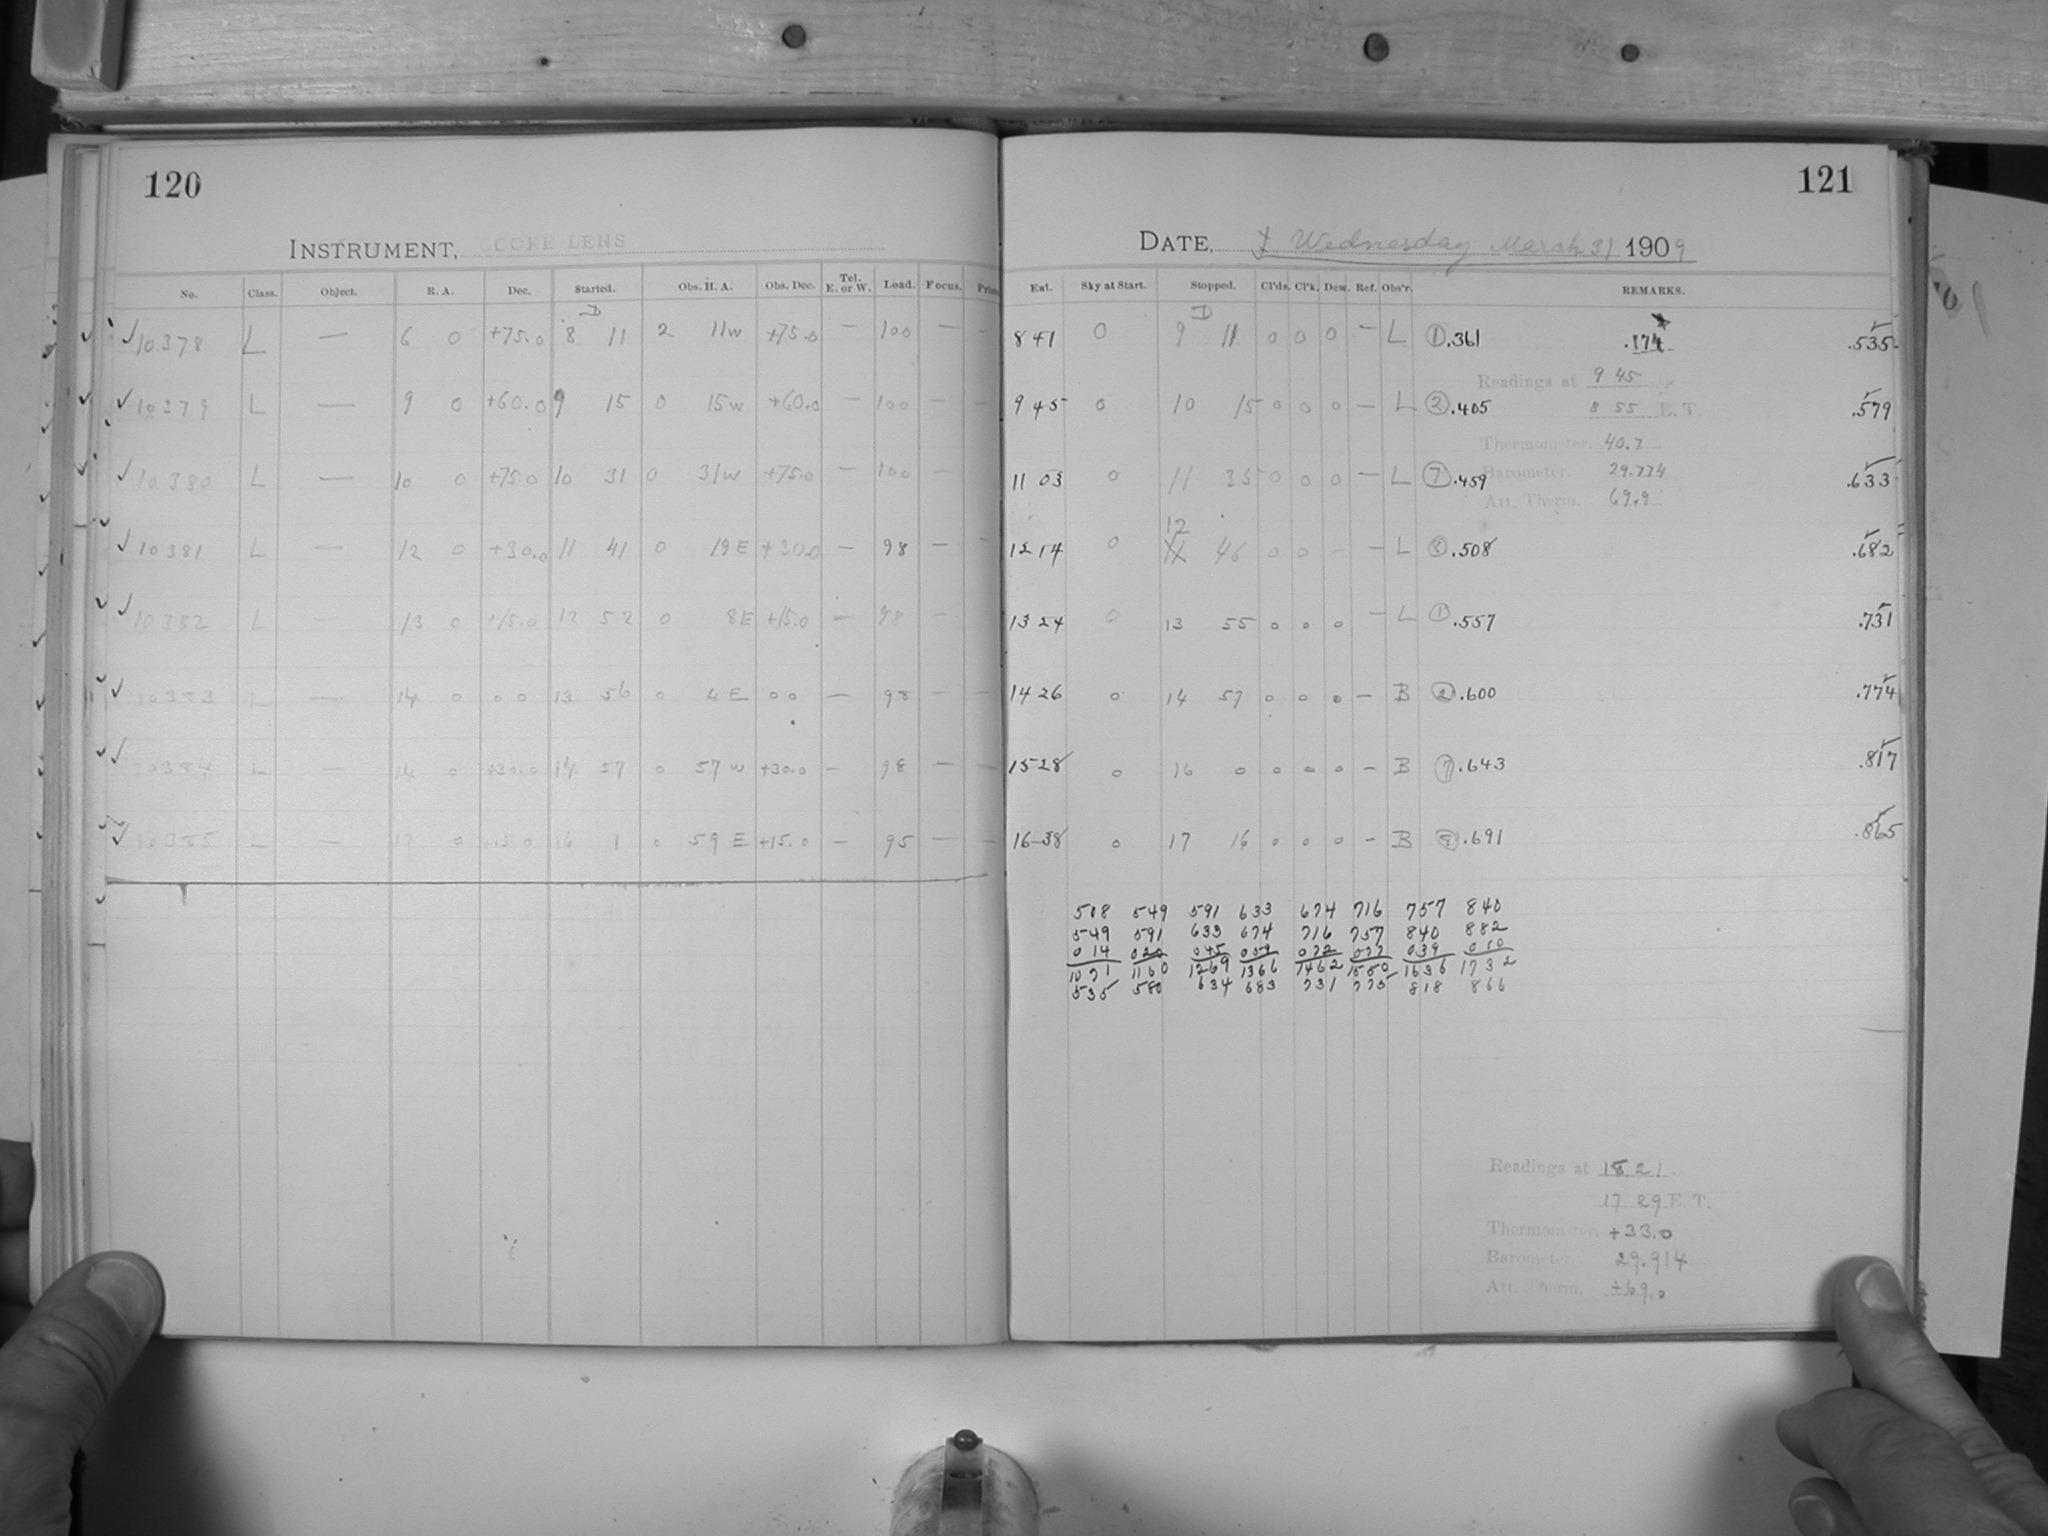 120
INSTRUMENT, COOKE LENS
No. Class. Object. R. A. Dec. Started. Obs. H. A. Obs. Dec. Tel. E. or W. Load. Focus.
D
✓10378 L — 6 0 +75.0 8 11 2 11w +75.0 — 100 — —
✓10379 L — 9 0 +60.0 9 15 0 15w +60.0 — 100 — —
✓10380 L — 10 0 +75.0 10 31 0 31w +75.0 — 100 — —
✓10381 L — 12 0 +30.0 11 41 0 19E +30.0 — 98 — —
✓10382 L — 13 0 +15.0 12 52 0 8E +15.0 — 98 —
✓10383 L — 14 0 0 0 13 56 0 4E 0 0 — 98 — —
✓10384 L — 14 0 +30.0 14 57 0 57w +30.0 — 98 — —
✓10385 L — 17 0 +15.0 16 1 0 59E +15.0 — 95 — —
121
DATE, Wednesday March 31 1909
Sky at Start. Stopped. Cl'ds. Cl'k. Dew. Ref. Obs'r. REMARKS.
D
841 0 9 11 0 0 0 — L ① .361 .174 .535
Readings at 9 45
945 0 10 15 0 0 0 — L ② .405 8 55 E. T. .579
Thermometer. 40.7
11 03 0 11 35 0 0 0 — L ⑦ .459 Barometer. 29.774 .633
Att. Therm. 69.9
12
12 14 0 46 0 0 — — L ⑧ .508 .682
13 24 0 13 55 0 0 0 — L ① .557 .731
14 26 0 14 57 0 0 0 — B ② .600 .774
15 28 0 16 0 0 0 0 — B ⑦ .643 .817
16 38 0 17 16 0 0 0 — B ⑧ .691 .865
508 549 591 633 674 716 757 840
549 591 633 674 716 757 840 882
014 020 045 059 072 077 039 010
1071 1160 1269 1366 1462 1550 1636 1732
535 580 634 683 731 775 818 866
Readings at 18 21
17 29 E. T.
Thermometer. +33.0
Barometer. 29.914
Att. Therm. +69.0